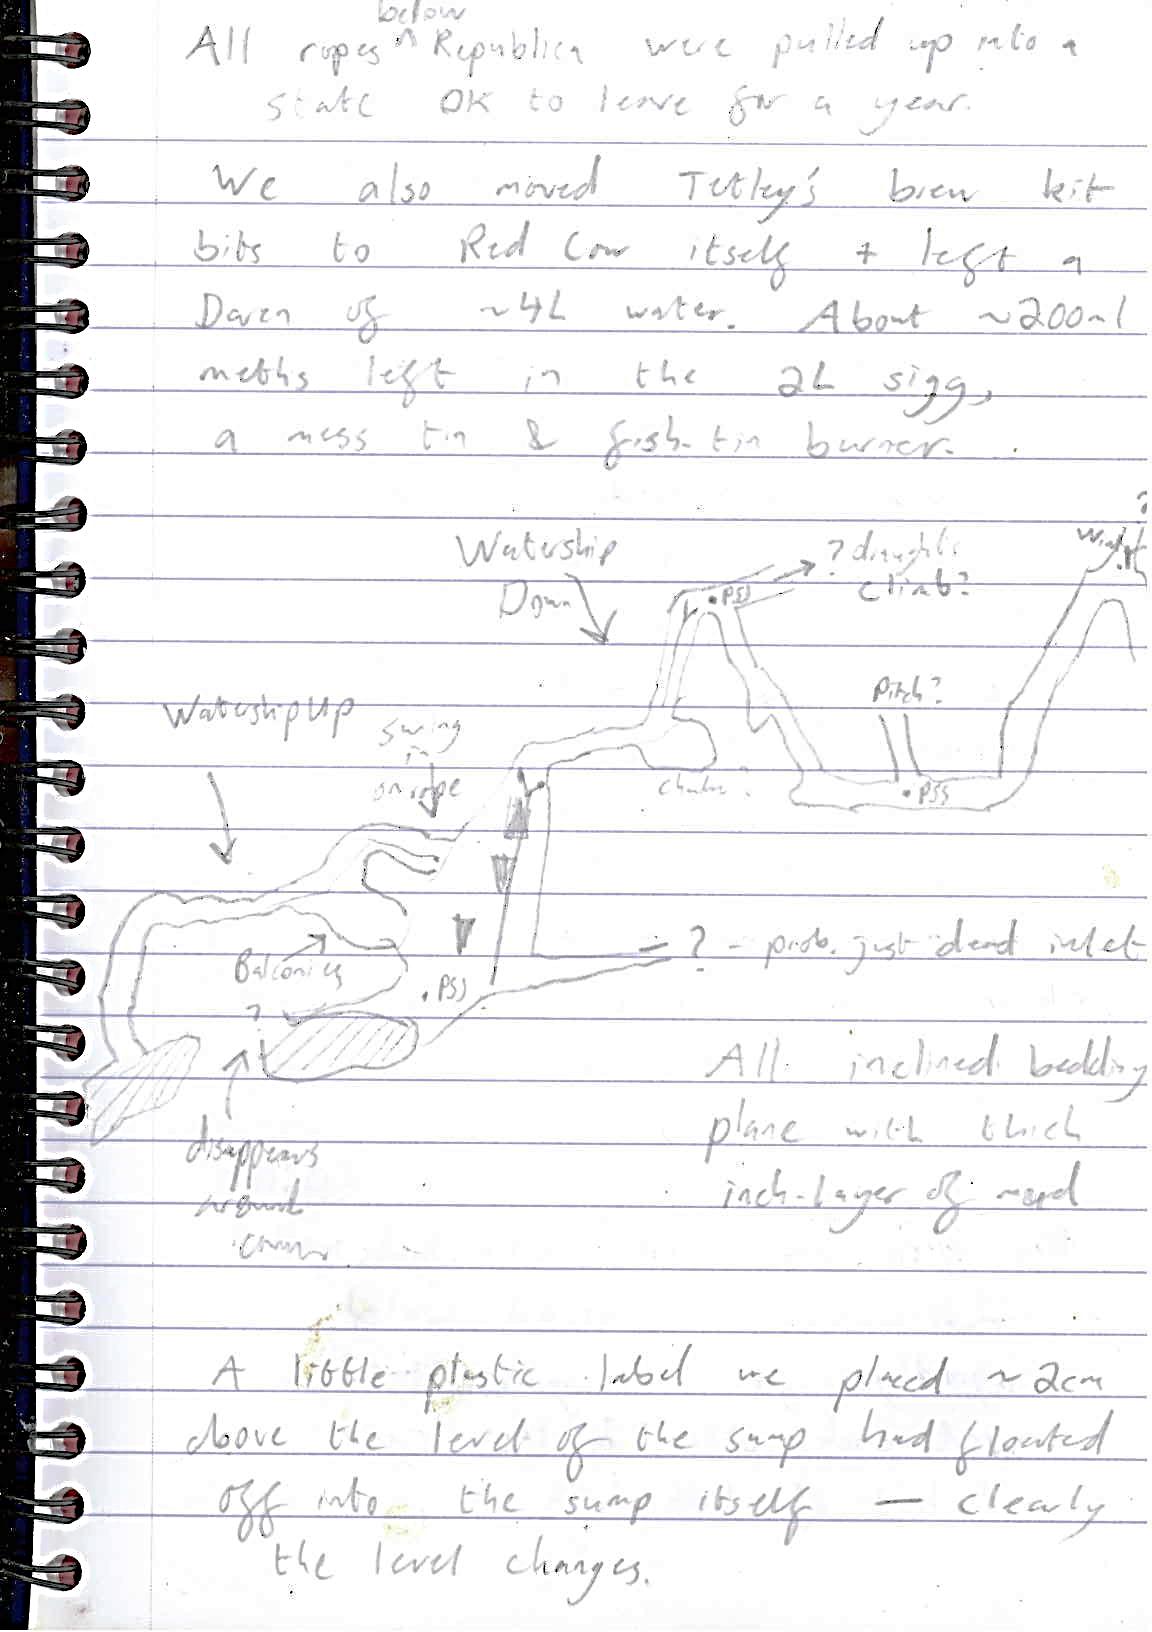 below
All ropes ^ Republica were pulled up into a
state OK to leave for a year.
We also moved Tetley's brew kit
bits to Red Cow itself + left a
Daren of ~4L water. About ~200ml
meths left in the 2L sigg,
a mess tin & fish-tin burner.
?
Watership
Down
? draughts
climb?
• PSS
Pitch?
Watership Up
swing
in
on rope
chamber?
• PSS
Balconies
? - prob. just dead inlet
• PSS
?
All inclined bedding
plane with thick
inch-layer of mud
disappears
around
corner
A little plastic label we placed ~2cm
above the level of the sump had floated
off into the sump itself — clearly
the level changes.